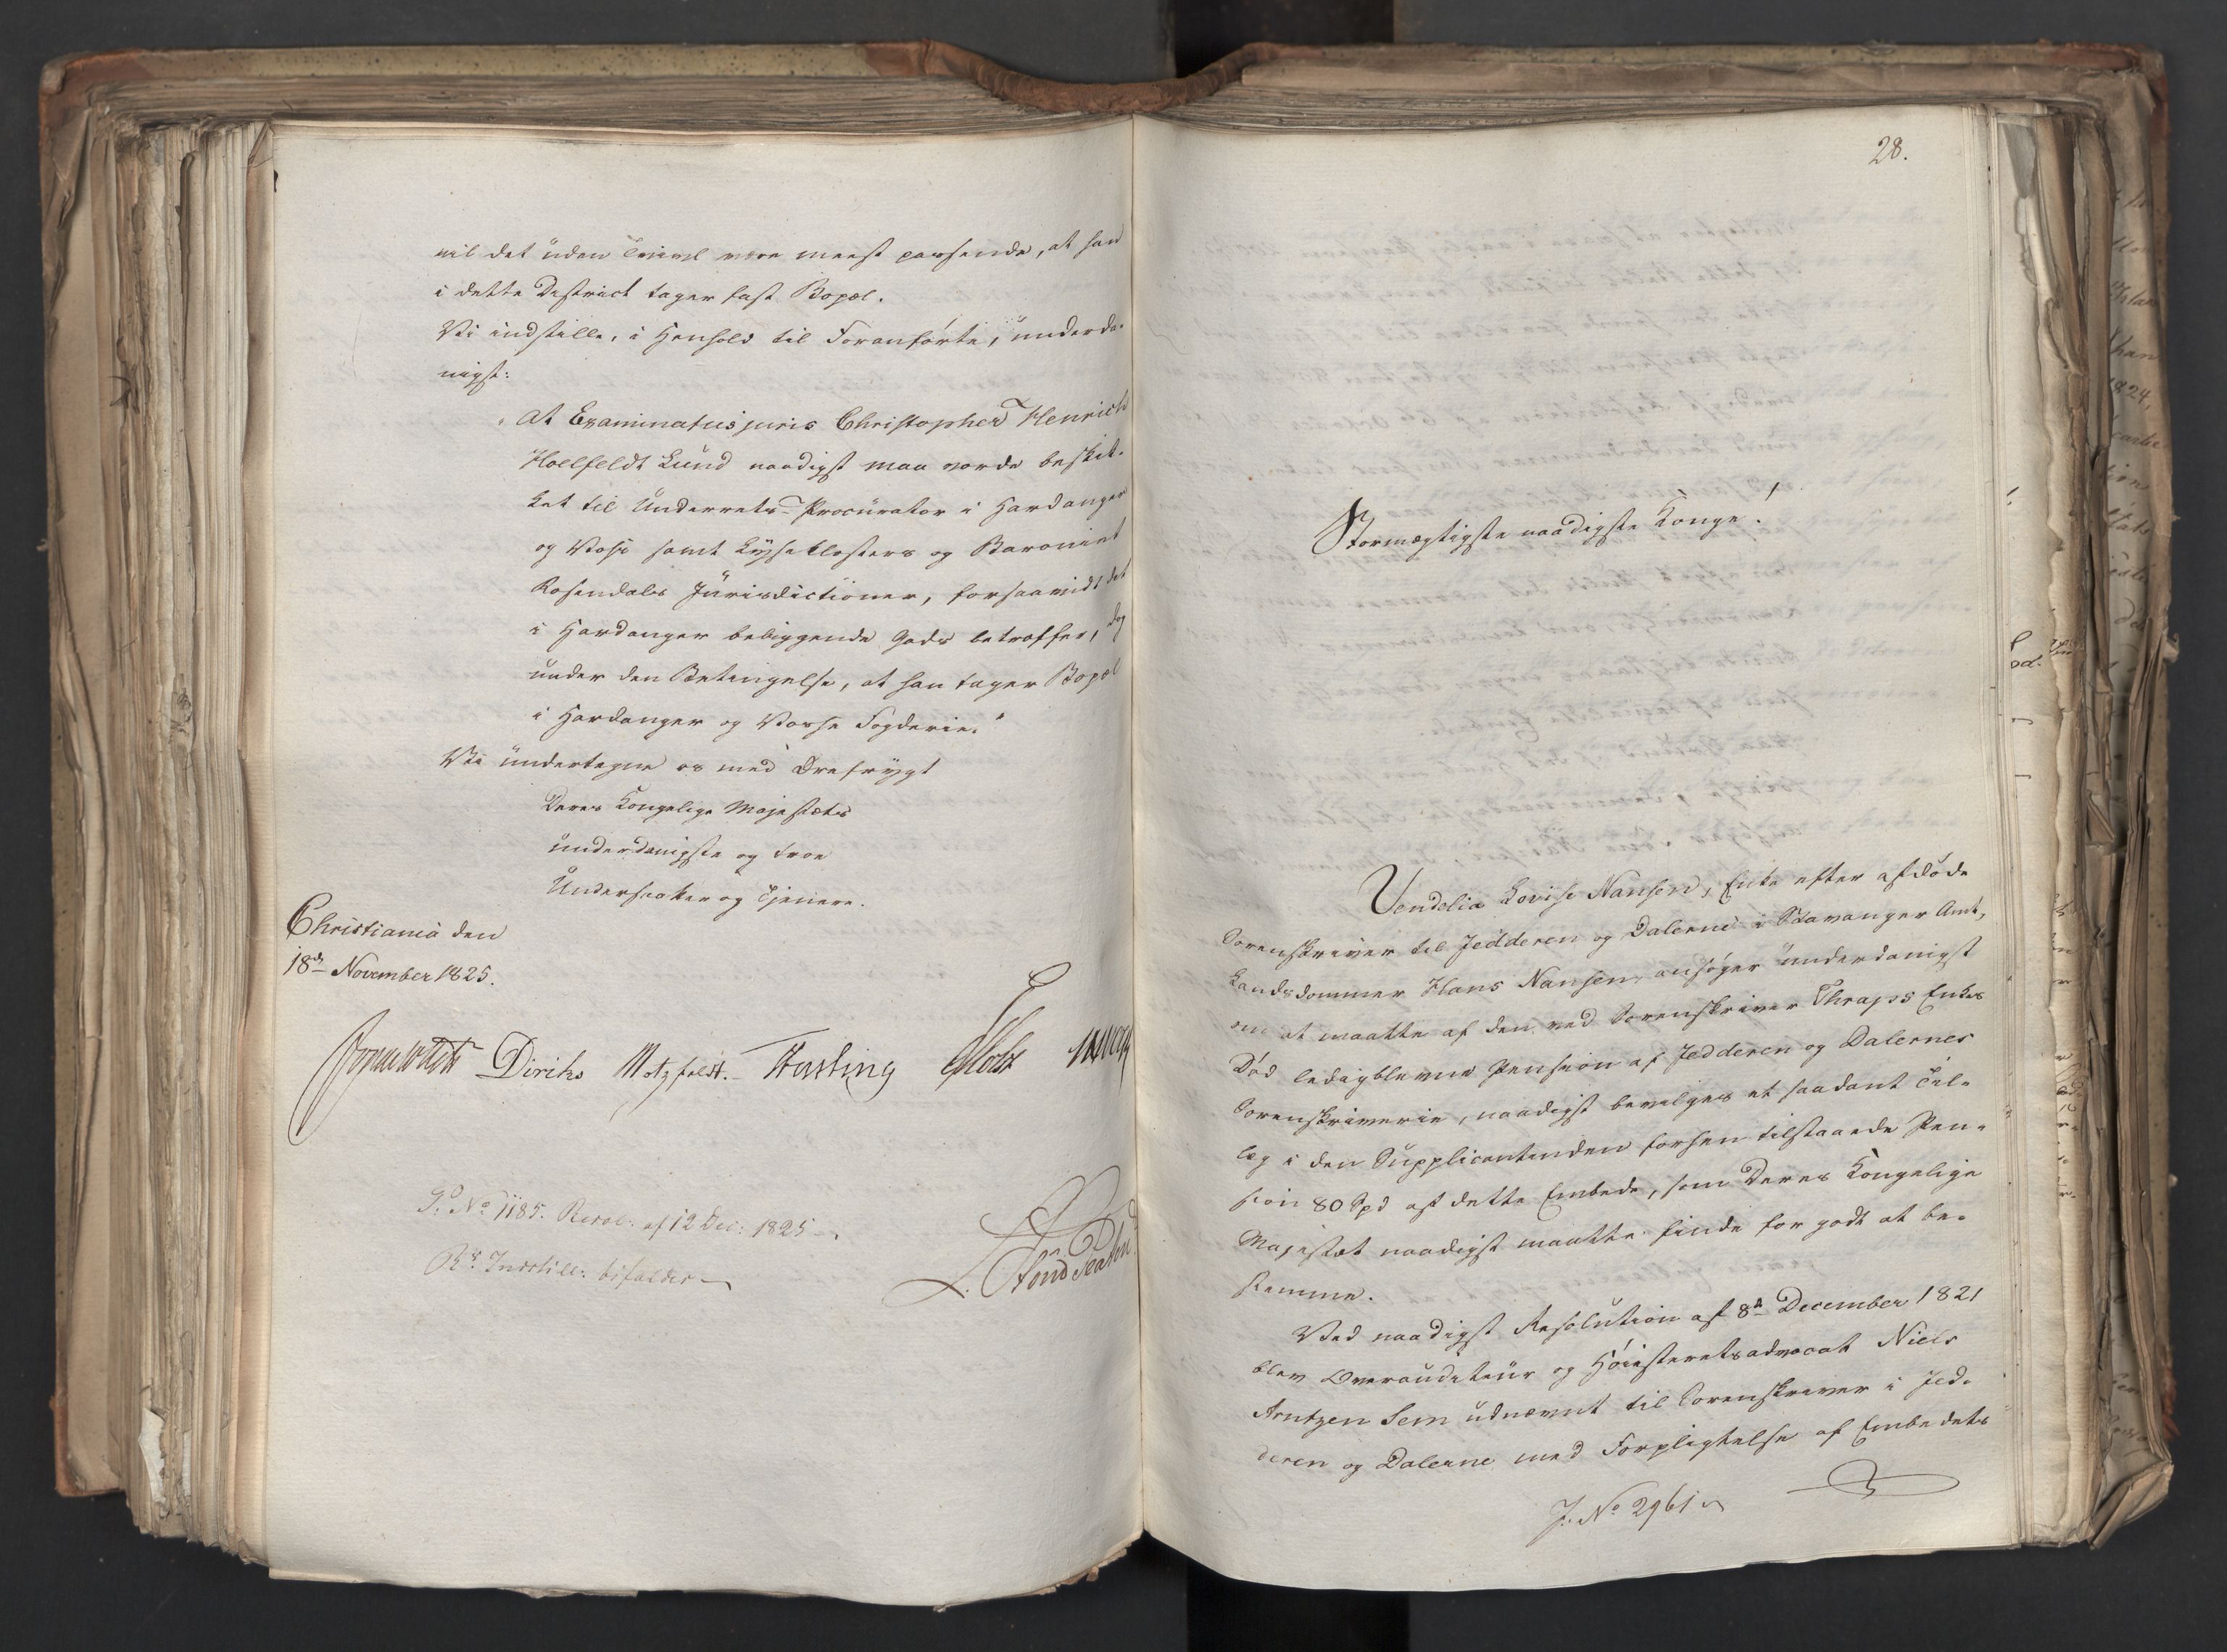 vil det uden Tvivl være meest passende, at han
i dette District tager fast Bopæl.
Vi indstille, i Henhold til Foranførte, underda-
nigst:
"at Examinatus juris Christopher Henrich
Hoelfeldt Lund naadigst maa vorde beskik-
ket til Underrets-Procurator i Hardanger
og Voss samt Lyseklosters og Baroniet
Rosendals Jurisdictioner, forsaavidt det
i Hardanger beliggende Gods betræffer, dog
under den Betingelse, at han tager Bopæl
i Hardanger og Vosse Fogderie."
Vi undertegne os med Ærefrygt
Deres Kongelige Majestæts
underdanigste og troe
Undersaatter og Tjenere.
Christiania den
18de November 1825.
Diriks Motzfeldt. Fasting Holst
S. No 1185. Resol: af 12 Dec: 1825
Rs Indstill: bifaldes
28.
Stormægtigste naadigste Konge!
Vendelia Lovise Nansen, Enke efter afdøde
Sorenskriver til Jedderen og Dalerne i Stavanger Amt,
Landsdommer Hans Nansen, ansøger underdanigst
om at maatte af den ved Sorenskriver Thraps Enkes
Død ledigblevne Pension af Jedderen og Dalernes
Sorenskriverie, naadigst bevilges et saadant Til-
læg i den Supplicantinden forhen tilstaaede Pen-
sion 80 Spd af dette Embede, som Deres Kongelige
Majestæt naadigst maatte finde for godt at be-
stemme.
Ved naadigst Resolution af 8de December 1821
blev Overauditeur og Høiesteretsadvocat Niels
Arntzen Sem udnævnt til Sorenskriver i Jed-
deren og Dalerne med Forpligtelse af Embedets
J. No 2961